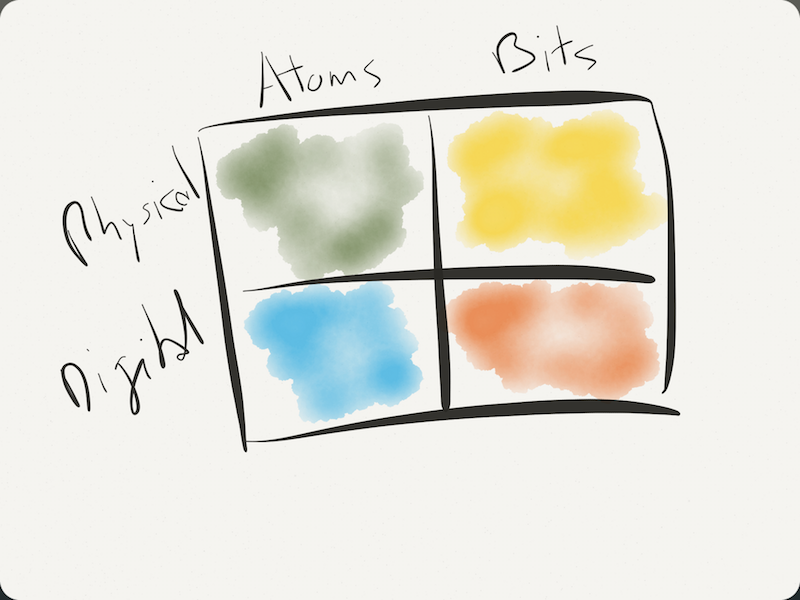 Atoms Bits
Physical
Digital